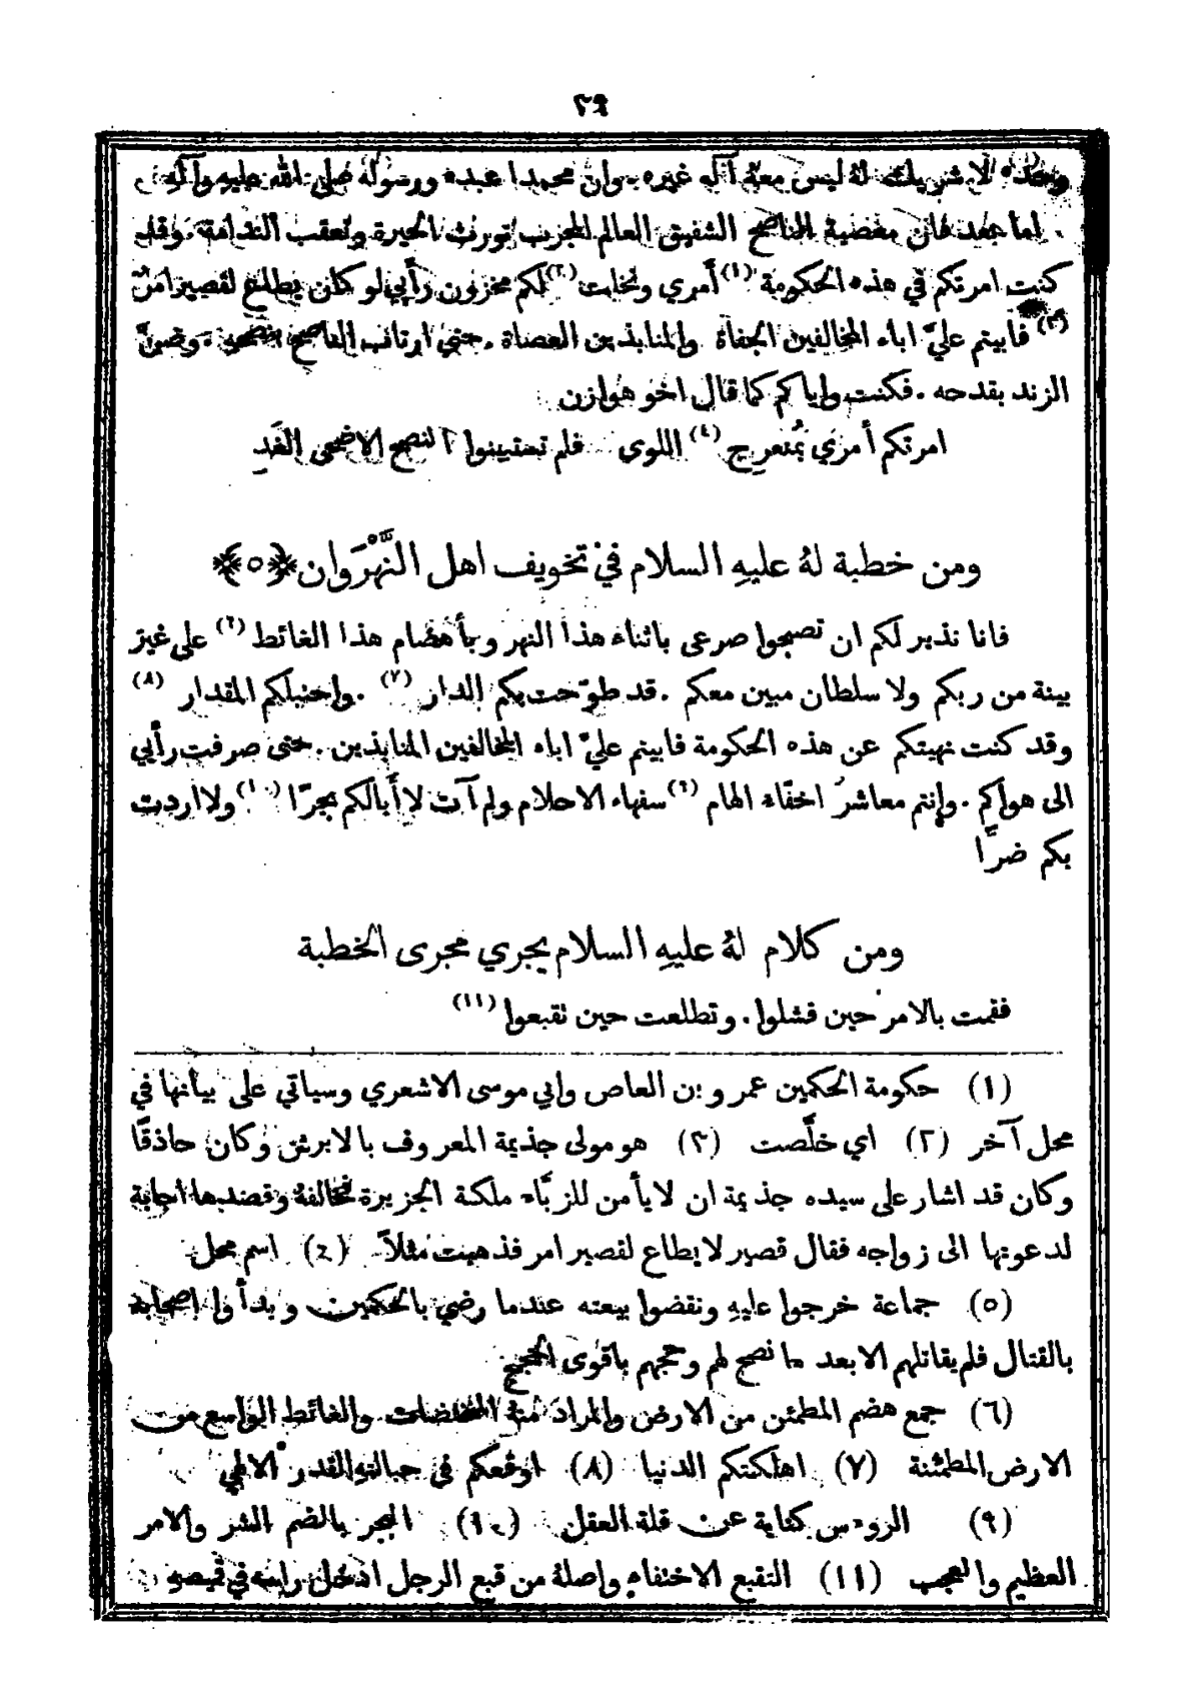 ٢٩
وحده لا شريك له ليس معه اله غيره . وان محمدا عبده ورسوله صلى الله عليه وآله
اما بعد فان معصية الناصح الشفيق العالم المجرب تورث الحيرة وتعقب الندامة . وقد
كنت امرتكم في هذه الحكومة (١) أمري ونخلت (٢) لكم مخزون رأيي لو كان يطاع لقصير امرٌ
(٣) فابيتم عليّ اباء المخالفين الجفاة والمنابذين العصاة . حتى ارتاب الناصح بنصحه . وضنَّ
الزند بقدحه . فكنت واياكم كما قال اخو هوازن
امرتكم أمري بمُنعرِج (٤) اللوى فلم تستبينوا النصح الا ضحى الغَدِ
ومن خطبة لهُ عليهِ السلام في تخويف اهل النَّهْرَوان ﴿٥﴾
فانا نذير لكم ان تصبحوا صرعى باثناء هذا النهر وبأهضام هذا الغائط (٦) على غير
بينة من ربكم ولا سلطان مبين معكم . قد طوّحت بكم الدار (٧) . واحتبلكم المقدار (٨)
وقد كنت نهيتكم عن هذه الحكومة فابيتم عليّ اباء المخالفين المنابذين . حتى صرفت رأيي
الى هواكم . وانتم معاشرُ اخفّاء الهام (٩) سفهاء الاحلام ولم آت لا أبا لكم بجرًا (١٠) ولا اردت
بكم ضرًّا
ومن كلام لهُ عليهِ السلام يجري مجرى الخطبة
فقمت بالامر حين فشلوا . وتطلعت حين تقبعوا (١١)
(١) حكومة الحكمين عمرو بن العاص وابي موسى الاشعري وسياتي على بيانها في
محل آخر (٢) اي خلَّصت (٣) هو مولى جذيمة المعروف بالابرش وكان حاذقًا
وكان قد اشار على سيده جذيمة ان لا يأمن للزبَّاء ملكة الجزيرة فخالفهُ وقصدها اجابة
لدعوتها الى زواجه فقال قصير لا يطاع لقصير امر فذهبت مثلاً (٤) اسم محل
(٥) جماعة خرجوا عليهِ ونقضوا بيعته عندما رضي بالحكمين وبدأوا اصحابه
بالقتال فلم يقاتلهم الا بعد ما نصح لهم وحجهم باقوى الحجج
(٦) جمع هضم المطمئن من الارض والمراد منهُ المنخفضات والغائط الواسع من
الارض المطمئنة (٧) اهلكتكم الدنيا (٨) اوقعكم في حبالته القدر الالهي
(٩) الروءس كناية عن قلة العقل (١٠) البجر بالضم الشر والامر
العظيم والعجب (١١) التقبع الاختفاء واصلهُ من قبع الرجل ادخل راسه في قميصهِ